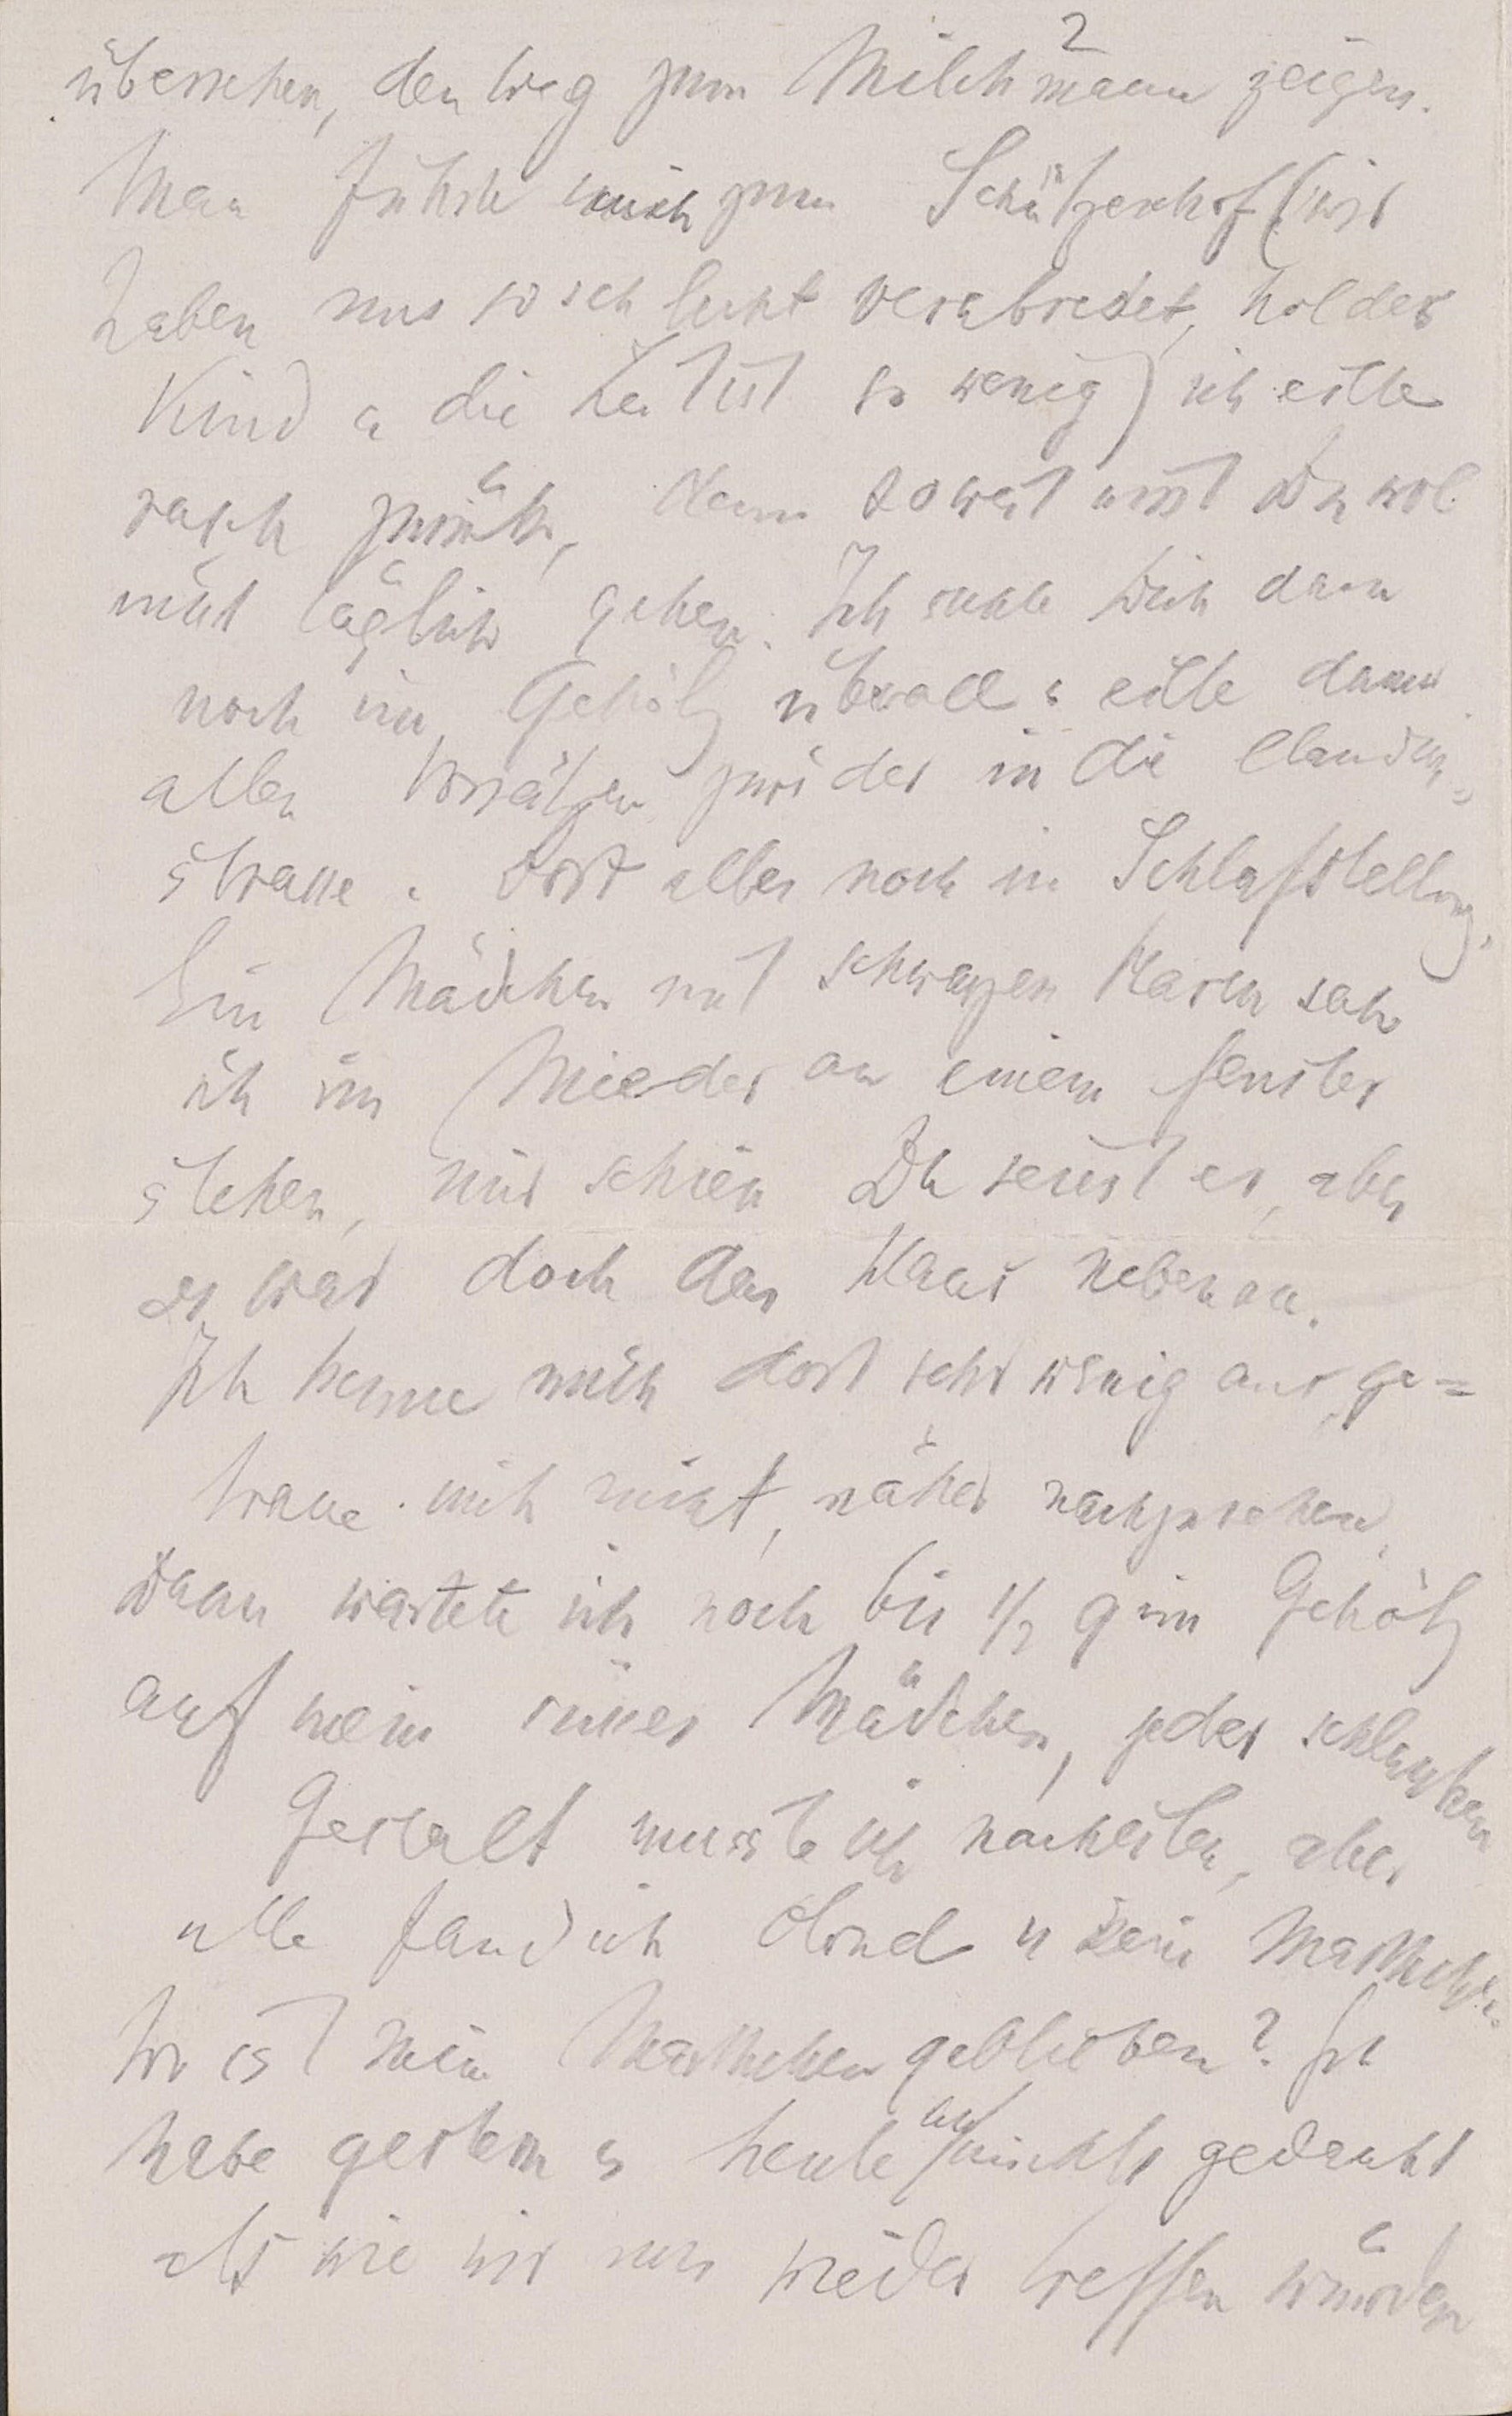 2
übersehen, den Weg zum Milchmann zeigen.
Man führte mich zum Schützenhof (wir
haben uns so schlecht verabredet, holdes
Kind u die Zeit ist so wenig) ich eilte
rasch zurük, denn so weit wirst Du wol
nicht täglich gehen. Ich suchte Dich dann
noch im Gehölz überall u eilte dann
allen Vorsätzen zuwider in die Claudius=
strasse. Dort alles noch in Schlafstellung.
Ein Mädchen mit schwarzen Haren sah
ich im Mieder an einem Fenster
stehen, mir schien Du seiest es, aber
es war doch das Haus nebenan.
Ich kenne mich dort sehr wenig aus, ge=
traue mich nicht, näher nachzusehen,
Dann wartete ich noch bis 1/2 9 im Gehölz
auf mein süsses Mädchen, jeder schlanken
Gestalt musste ich nacheilen, aber
alle fand ich blond u kein Marthchen.
Wo ist mein Marthchen geblieben? Ich
habe gestern u heute an nichts gedacht
als wie wir uns wieder treffen würden